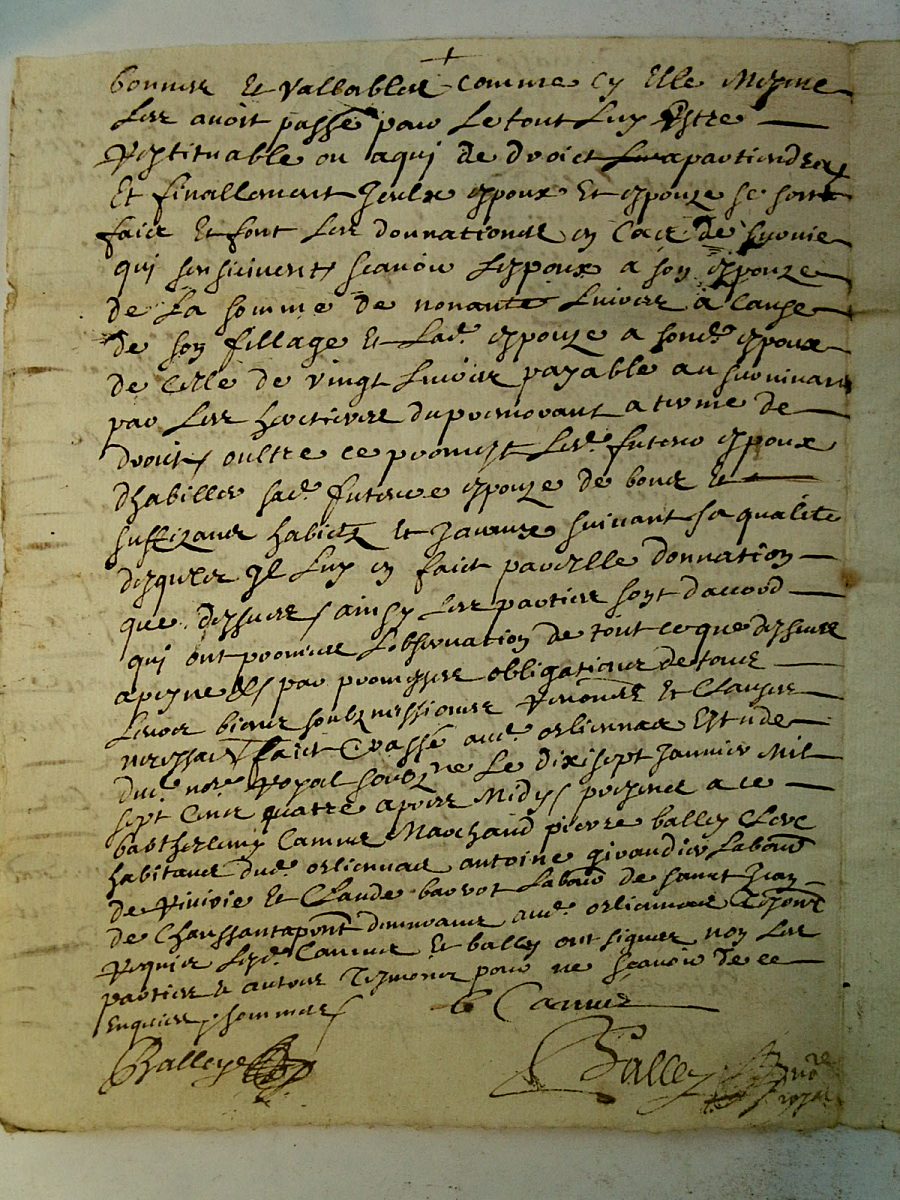 bonnes et vallables comme sy elle mesme
les avoit passé par le tout luy estre
restituable ou a qui de droict apartiendra
Et finallement iceulx espoux et espouze se sont
faict et font les donnations en cas de survie
qui sensuivent scavoir lespoux a son espouze
de la somme de nonante livres à cause
de son fillage et lad. espouze a sond. espoux
de celle de vingt livres payable au survivant
par les heretiers du premorant a terme de
droict oultre ce promest led. futeur espoux
dhabiller sad. futeure espouze de bons et
suffizans habictz et suivant sa qualité
desquels il luy en faict pareille donnation
que dessus ainsy les parties sont daccord
qui ont promis lobservation de tout ce que dessus
a peyne par promesses obligations de tous
leurs biens soubzmissions renonces et clauses
necessaires faict et passé aud. orliennas estude
dud. nore royal soubzne le dixsept janvier mil
sept cens quatre apres midy presens a ce
barthelemy Camus Marchand pierre balley clerc
habitans dud. orliennas antoine giraudier labour
de Rivirie et Claude barrot labour de sainct Jean
de Chaussan demeurant aud. orliennas tesmoins
requis lesd. Camus et balley ont signés non les
parties et autres tesmoins pour ne scavoir de ce
enquis et sommés
b Camus
Balleys
Balley
nore
royal